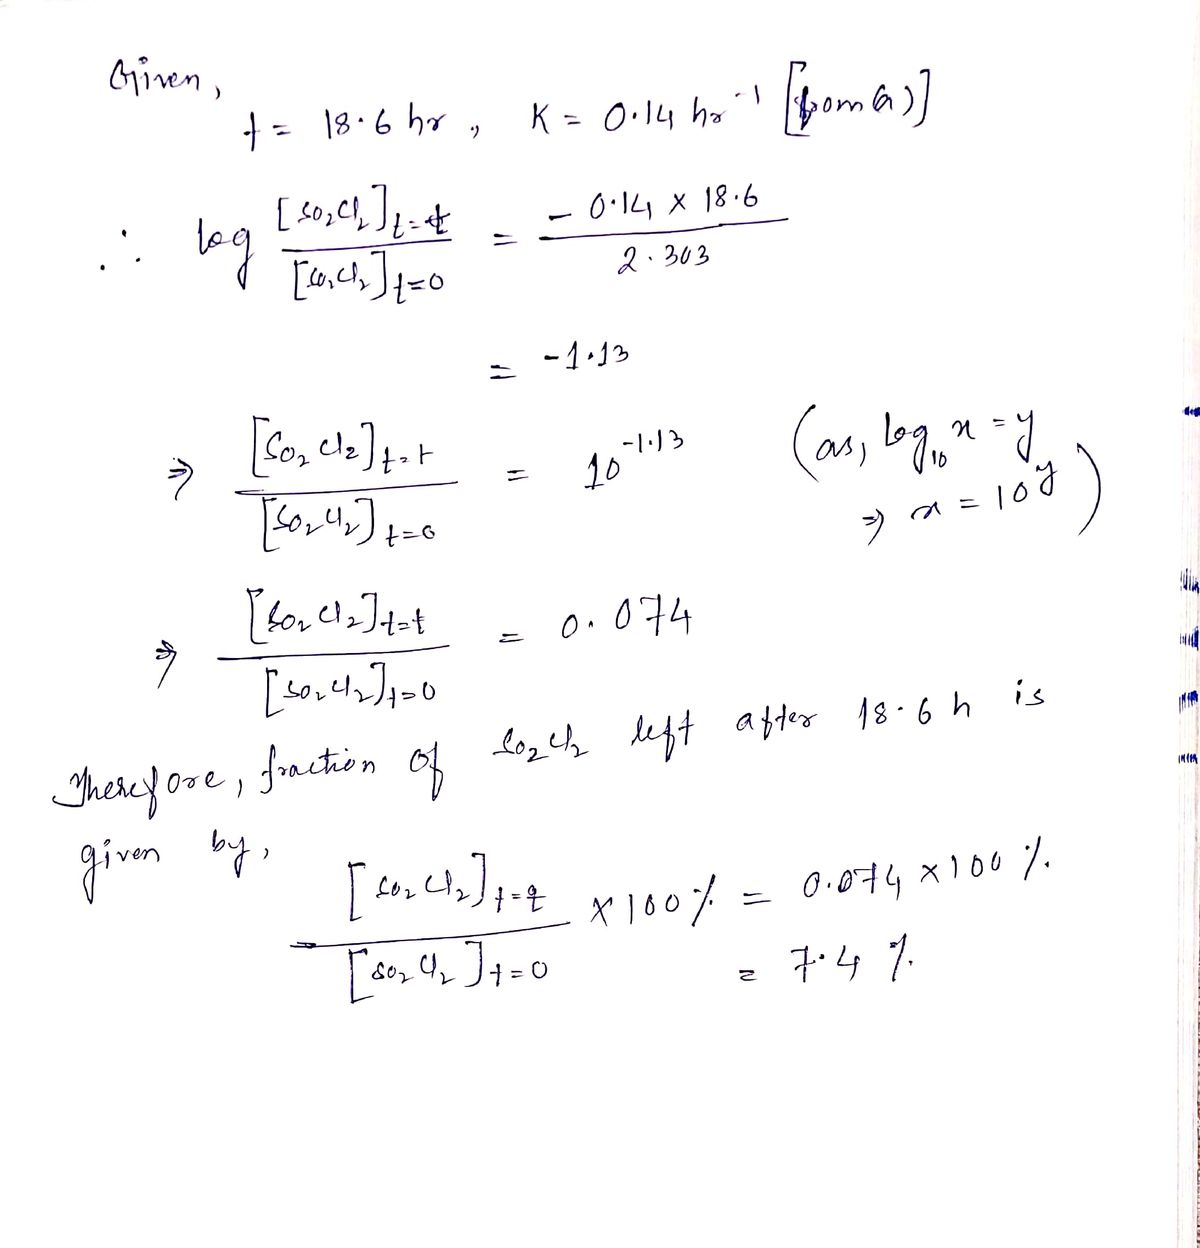 Given,
t = 18.6 hr, K = 0.14 hr⁻¹ [from a)]
∴ log [SO₂Cl₂]t=t / [SO₂Cl₂]t=0 = - 0.14 × 18.6 / 2.303
= -1.13
⇒ [SO₂Cl₂]t=t / [SO₂Cl₂]t=0 = 10⁻¹·¹³ (as, log₁₀ x = y
⇒ x = 10ʸ)
⇒ [SO₂Cl₂]t=t / [SO₂Cl₂]t=0 = 0.074
Therefore, fraction of SO₂Cl₂ left after 18.6 h is
given by,
[SO₂Cl₂]t=t / [SO₂Cl₂]t=0 × 100 % = 0.074 × 100 %.
= 7.4 %.